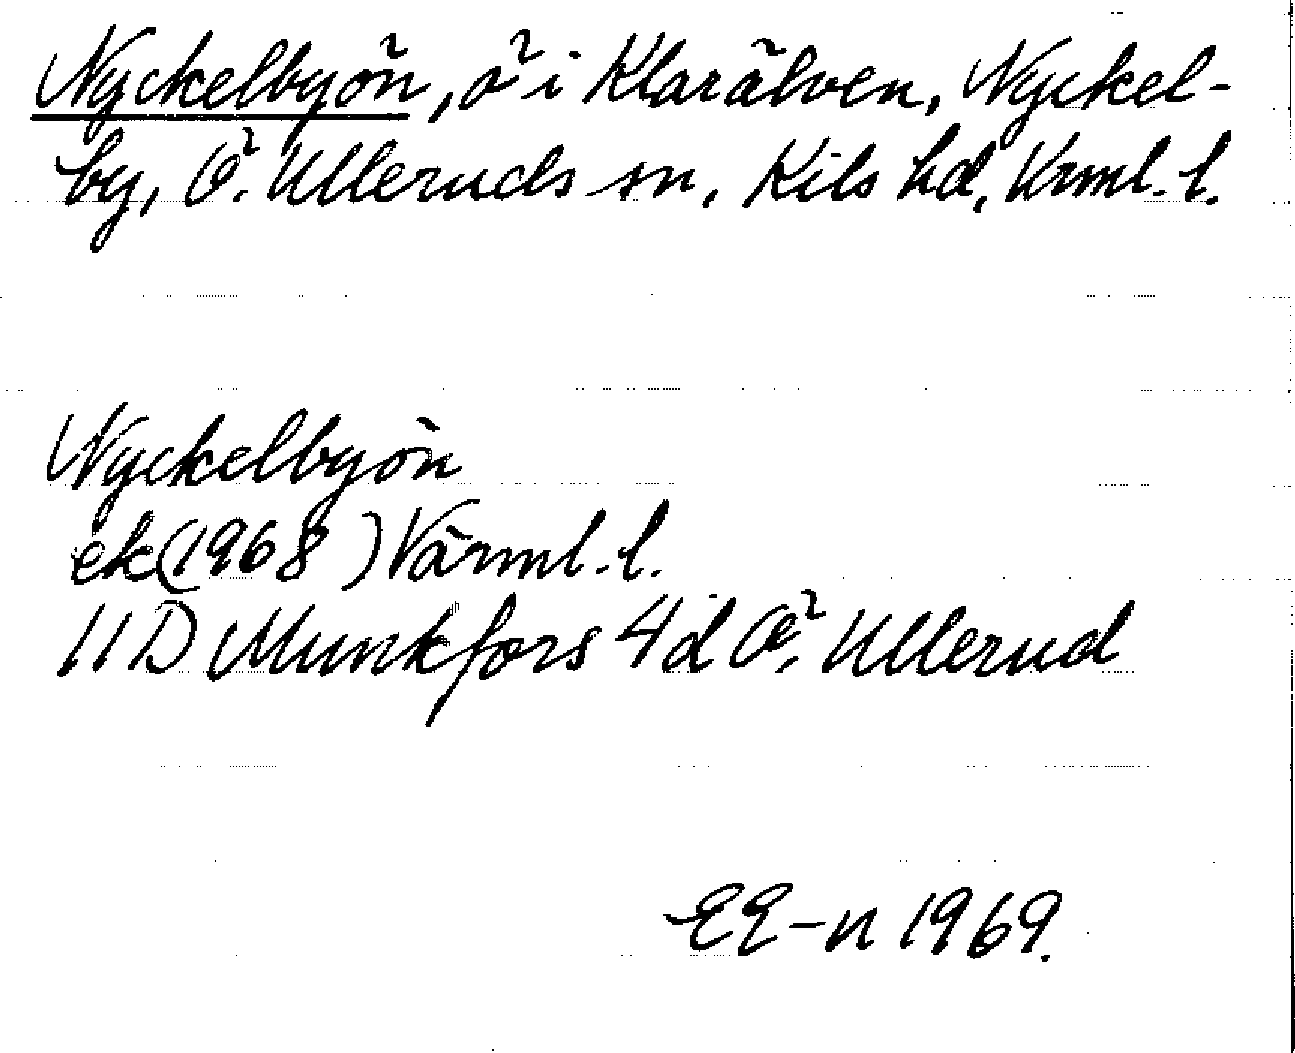 Nyckelbyön, ö i Klarälven, Nyckel-
by, Ö. Ulleruds sn, Kils hd, Vrml. l.
Nyckelbyön
ek (1968) Värml. l.
11D Munkfors 4d Ö. Ullerud
EE-n 1969.